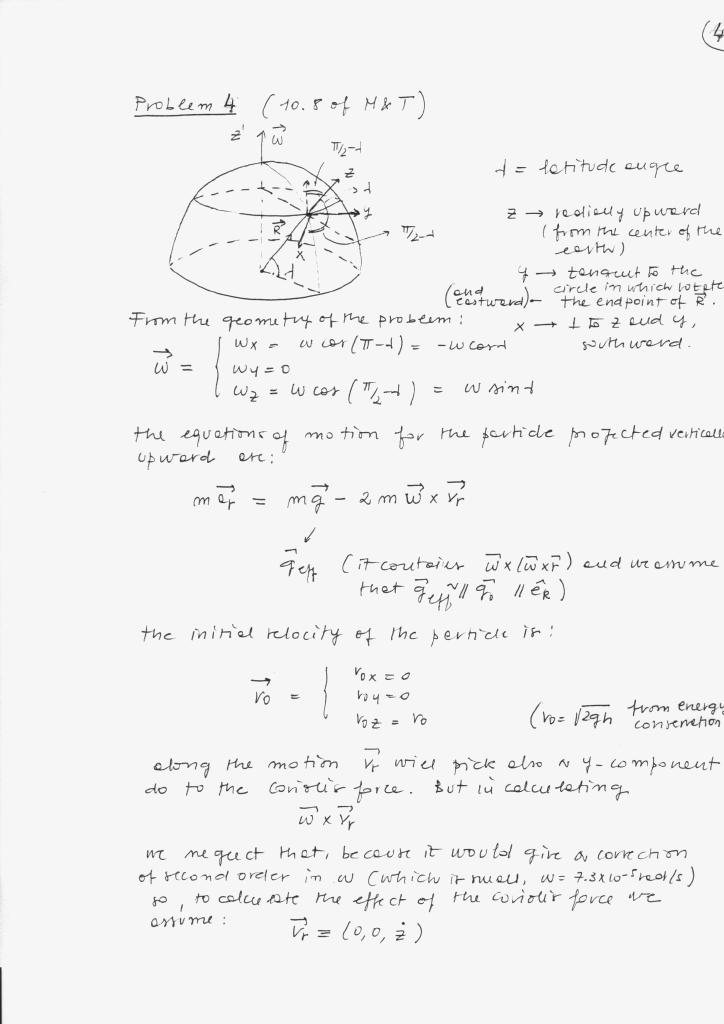 4
Problem 4 (10.8 of M&T)
z' ω⃗
π/2-λ
z
λ
y
R⃗
π/2-λ
x
λ
λ = latitude angle
z → radially upward
(from the center of the
earth)
y → tangent to the
(and eastward) ← circle in which rotate
the endpoint of R⃗.
From the geometry of the problem:
x → ⊥ to z and y,
southward.
ω⃗ = { ωx = ω cos(π-λ) = -ω cos λ
ωy = 0
ωz = ω cos(π/2-λ) = ω sin λ
the equations of motion for the particle projected vertically
upward are:
m a⃗r = m g⃗ - 2 m ω⃗ x v⃗r
↙
g⃗eff (it contains ω⃗x(ω⃗xr⃗) and we assume
that g⃗eff ≈ // g⃗0 // êR)
the initial velocity of the particle is:
v⃗0 = { v0x = 0
v0y = 0
v0z = v0
(v0 = √2gh from energy
conservation
along the motion v⃗r will pick also a y-component
do to the Coriolis force. But in calculating
ω⃗ x v⃗r
we neglect that, because it would give a correction
of second order in ω (which is small, ω = 7.3x10-5 rad/s)
so, to calculate the effect of the Coriolis force we
assume: v⃗r ≡ (0,0,ż)